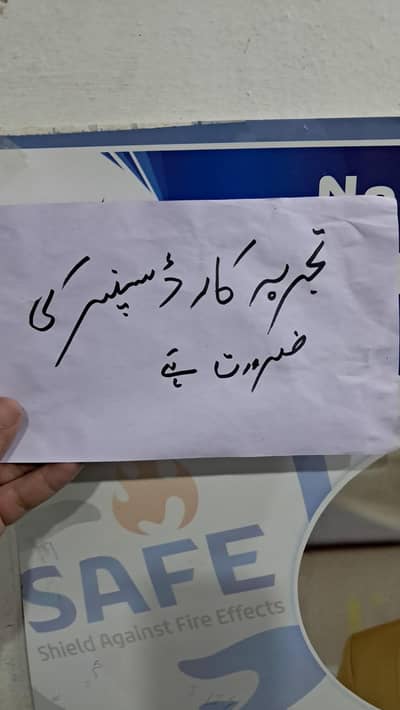 Na
تجربہ کار ڈسپنسر کی
ضرورت ہے
SAFE
Shield Against Fire Effects